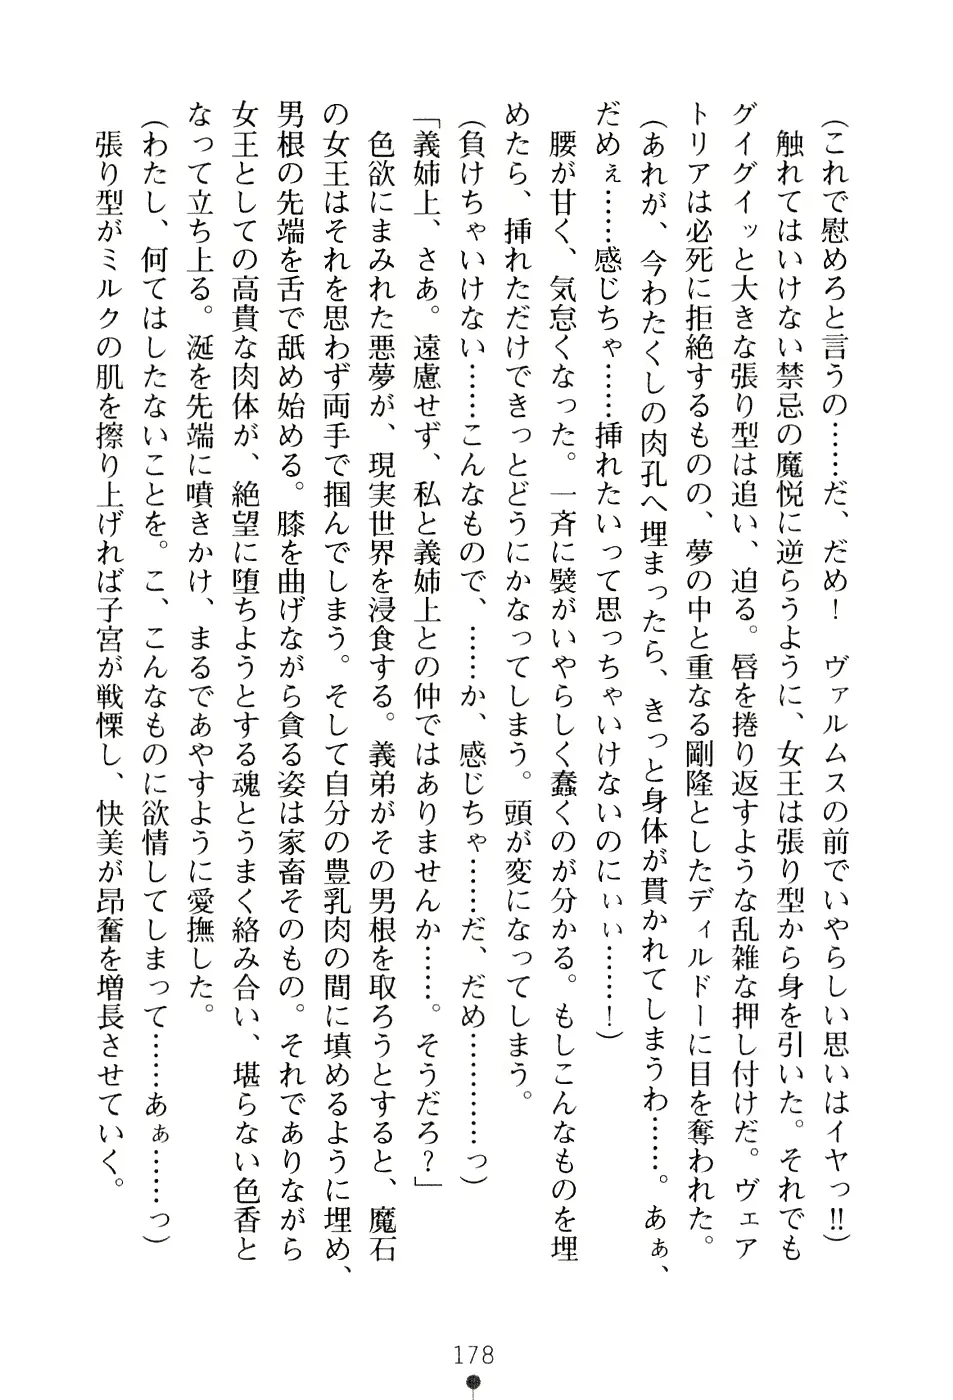 (これで慰めろと言うの……だ、だめ！　ヴァルムスの前でいやらしい思いはイヤっ!!)
触れてはいけない禁忌の魔悦に逆らうように、女王は張り型から身を引いた。それでも
グイグイッと大きな張り型は追い、迫る。唇を捲り返すような乱雑な押し付けだ。ヴェア
トリアは必死に拒絶するものの、夢の中と重なる剛隆としたディルドーに目を奪われた。
(あれが、今わたくしの肉孔へ埋まったら、きっと身体が貫かれてしまうわ……。あぁ、
だめぇ……感じちゃ……挿れたいって思っちゃいけないのにぃぃ……！)
腰が甘く、気怠くなった。一斉に襞がいやらしく蠢くのが分かる。もしこんなものを埋
めたら、挿れただけできっとどうにかなってしまう。頭が変になってしまう。
(負けちゃいけない……こんなもので、……か、感じちゃ……だ、だめ…………っ)
「義姉上、さあ。遠慮せず、私と義姉上との仲ではありませんか……。そうだろ？」
色欲にまみれた悪夢が、現実世界を浸食する。義弟がその男根を取ろうとすると、魔石
の女王はそれを思わず両手で掴んでしまう。そして自分の豊乳肉の間に填めるように埋め、
男根の先端を舌で舐め始める。膝を曲げながら貪る姿は家畜そのもの。それでありながら
女王としての高貴な肉体が、絶望に堕ちようとする魂とうまく絡み合い、堪らない色香と
なって立ち上る。涎を先端に噴きかけ、まるであやすように愛撫した。
(わたし、何てはしたないことを。こ、こんなものに欲情してしまって……あぁ……っ)
張り型がミルクの肌を擦り上げれば子宮が戦慄し、快美が昂奮を増長させていく。
178